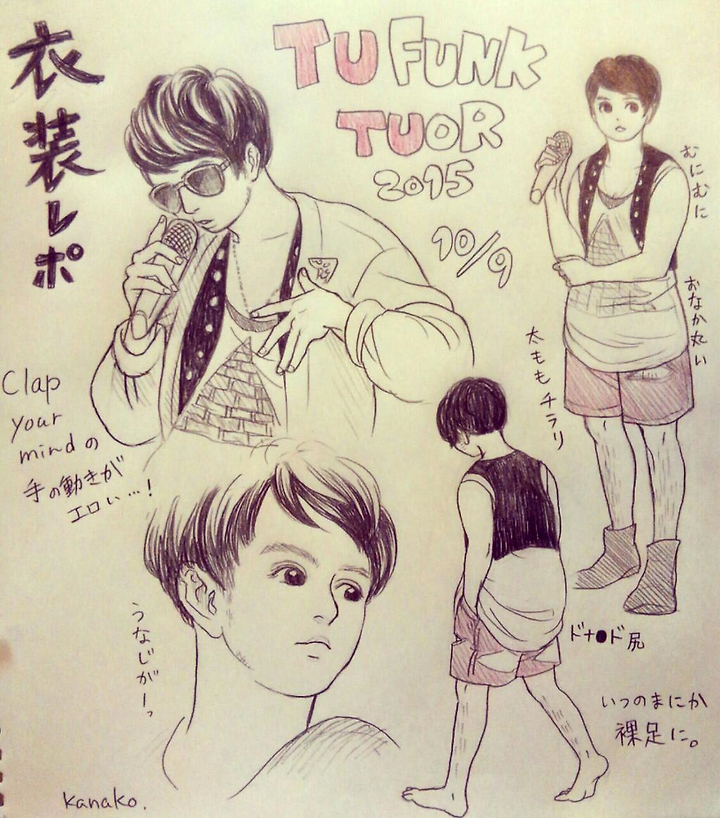 衣装レポ
TU FUNK
TUOR
2015
10/9
むにむに
おなか丸い
太ももチラリ
Clap
your
mindの
手の動きが
エロい…!
うなじがーっ
ドナ●ド尻
いつのまにか
裸足に。
kanako.